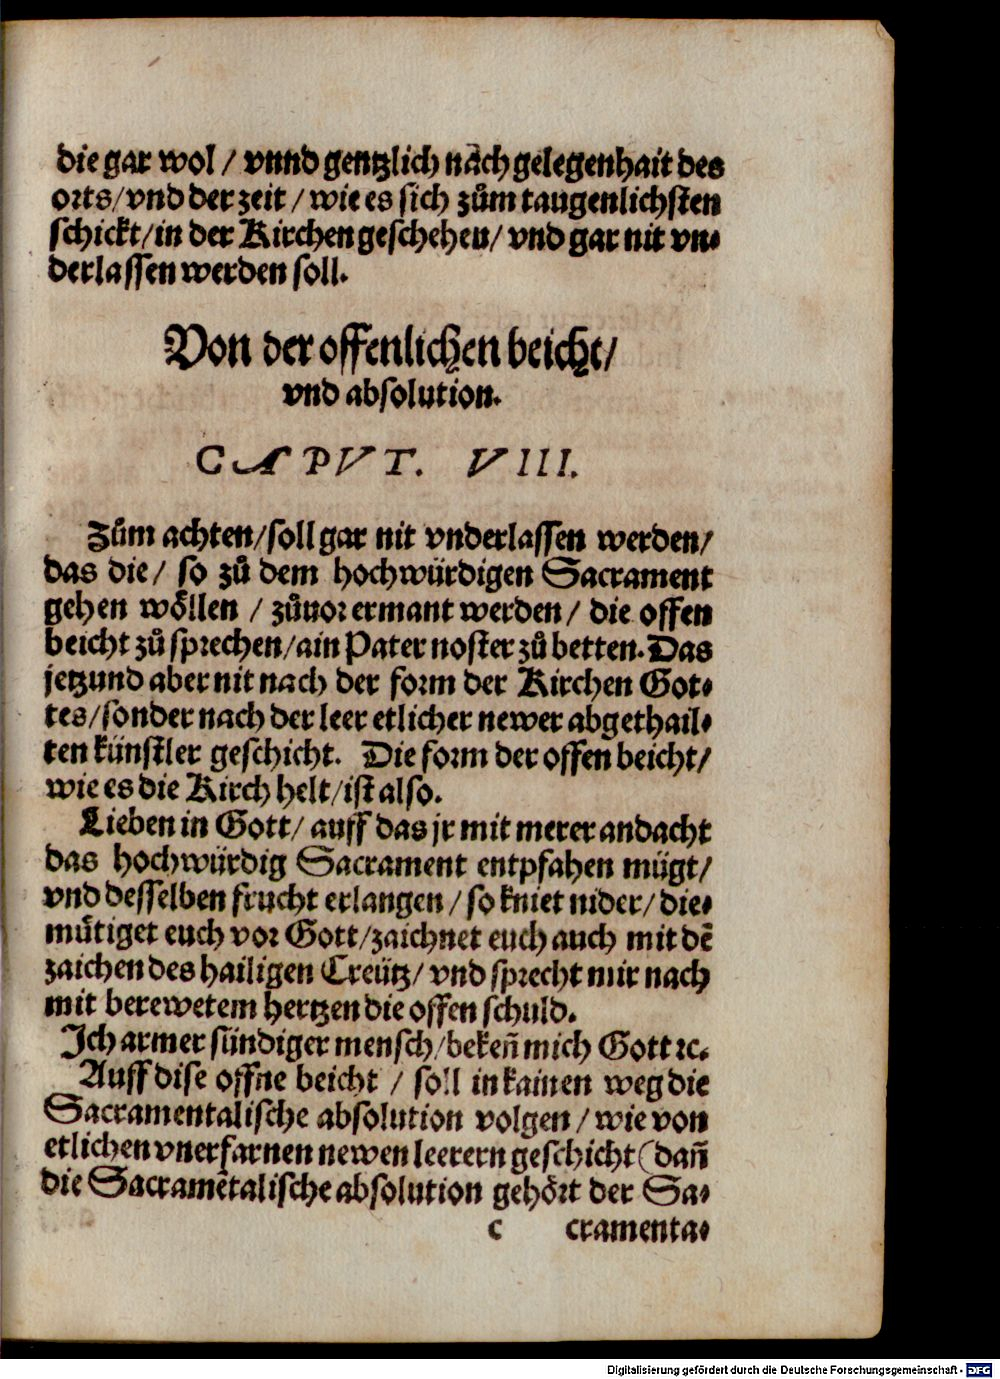 die gar wol / vnnd gentzlich nach gelegenhait des
orts/vnd der zeit / wie es sich zům taugenlichsten
schickt/in der Kirchen geschehen/ vnd gar nit vn⸗
derlassen werden soll.
Von der offenlichen beicht/
vnd absolution.
CAPVT. VIII.
Zům achten/soll gar nit vnderlassen werden/
das die/ so zů dem hochwürdigen Sacrament
gehen wöllen / zůuor ermant werden/ die offen
beicht zů sprechen/ain Pater noster zů betten. Das
jetzund aber nit nach der form der Kirchen Got⸗
tes/sonder nach der leer etlicher newer abgethail⸗
ten künstler geschicht. Die form der offen beicht/
wie es die Kirch helt/ist also.
Lieben in Gott/ auff das jr mit merer andacht
das hochwürdig Sacrament entpfahen mügt/
vnd desselben frucht erlangen / so kniet nider/ die⸗
mütiget euch vor Gott/zaichnet euch auch mit dẽ
zaichen des hailigen Creütz/ vnd sprecht mir nach
mit berewetem hertzen die offen schuld.
Ich armer sündiger mensch/bekeñ mich Gott ꝛc.
Auff dise offne beicht / soll in kainen weg die
Sacramentalische absolution volgen / wie von
etlichen vnerfarnen newen leerern geschicht (dañ
die Sacramẽtalische absolution gehört der Sa⸗
c cramenta⸗
Digitalisierung gefördert durch die Deutsche Forschungsgemeinschaft - DFG